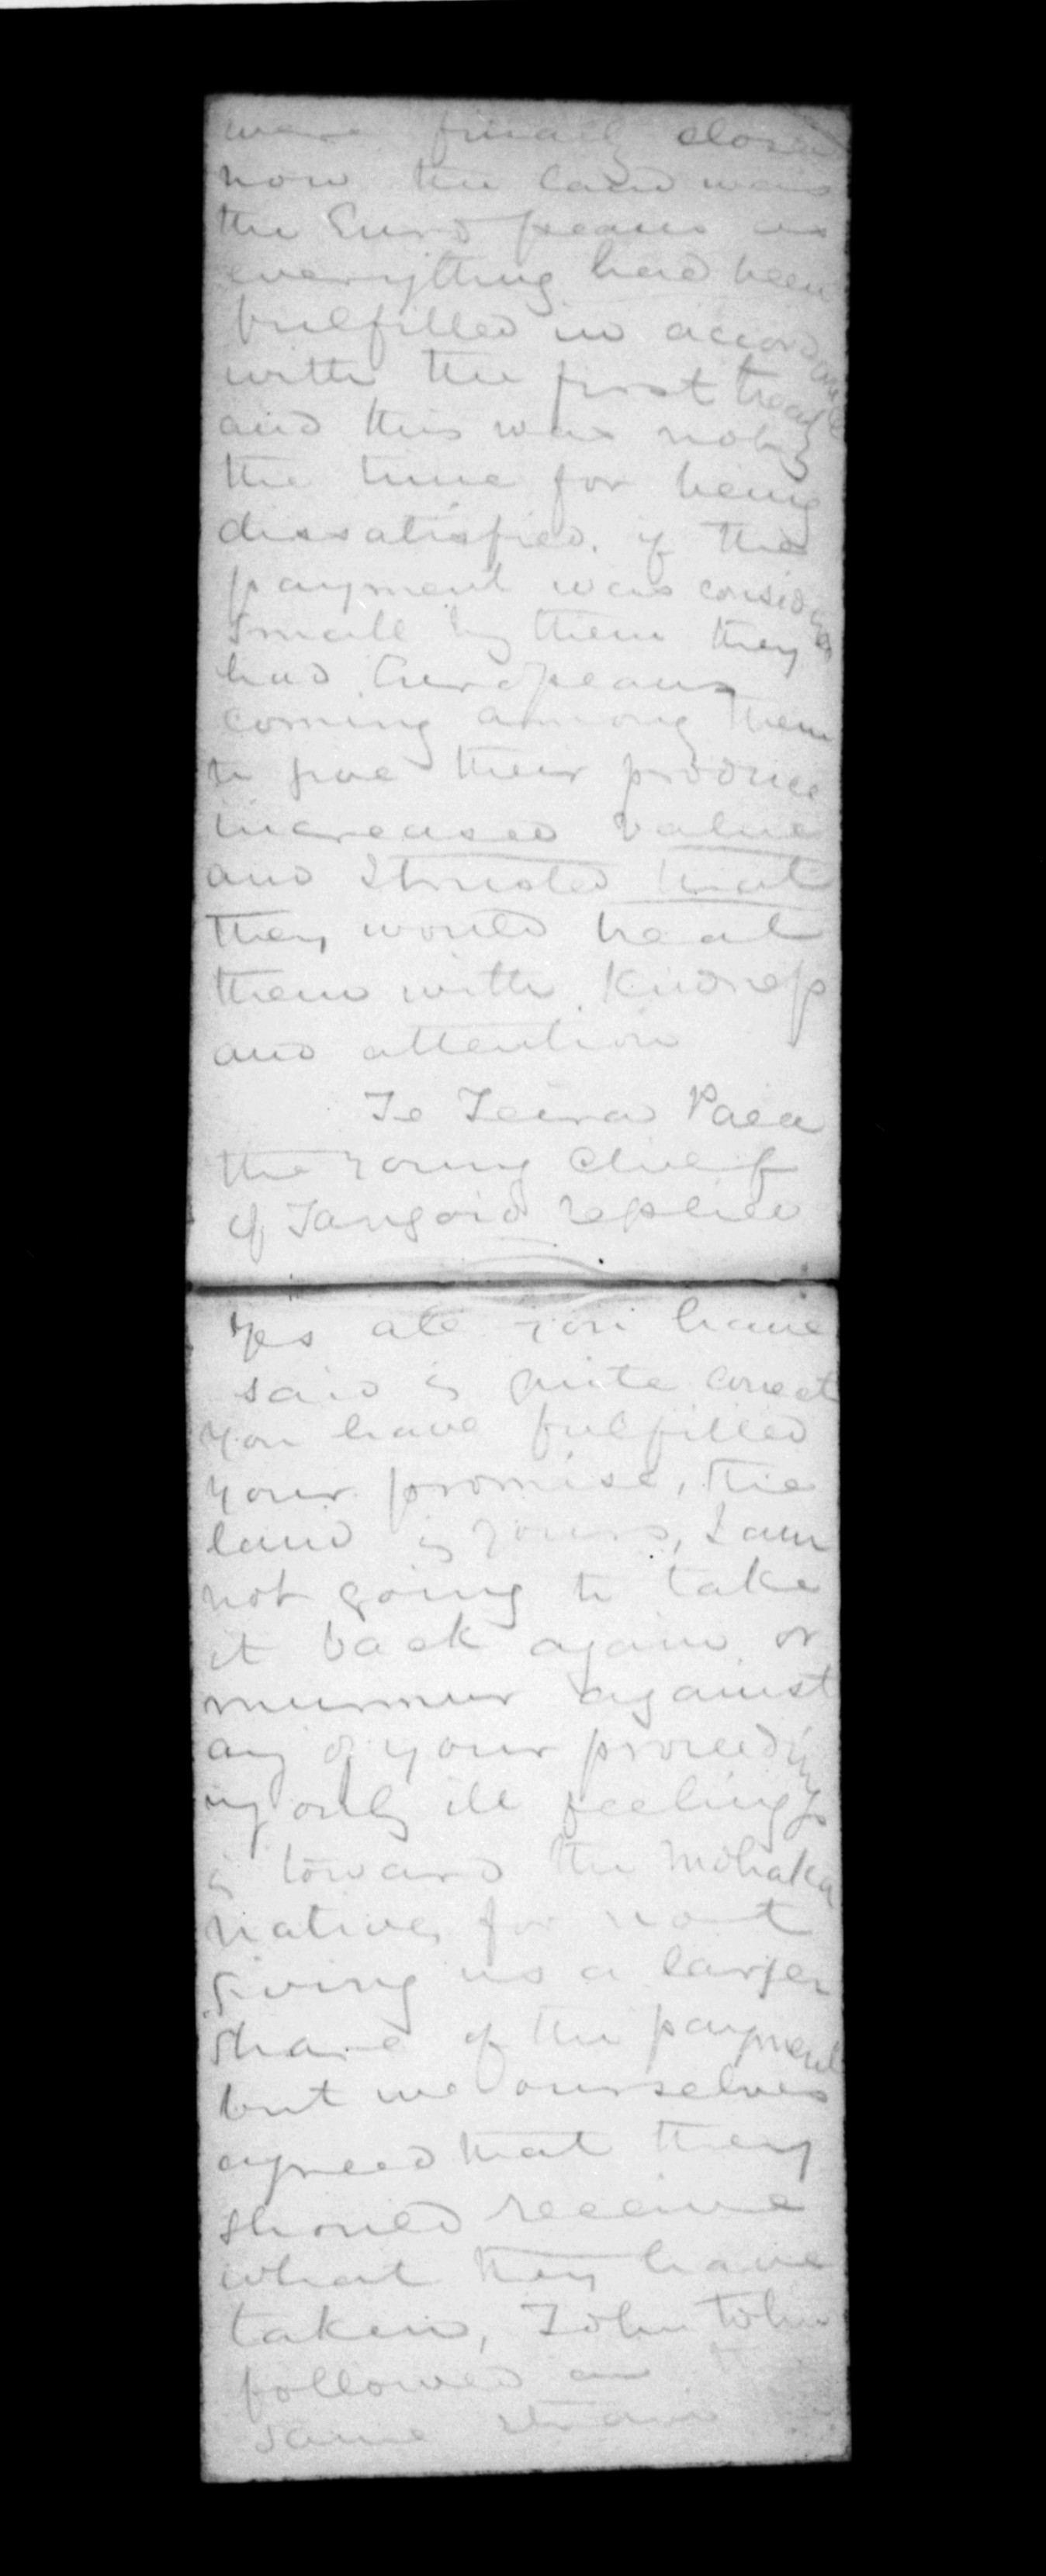 were finally closed
now the land was
the Europeans as
everything had been
fulfilled in accordance
with the first treaty
and this was not
the time for being
dissatisfied. if the
payment was considered
small by them they
had Europeans
coming among them
to give their produce
increased value
and I trusted that
they would treat
them with kindness
and attention
Te Teira Paea
the young chief
of Tangoio replied
Yes all you have
said is quite correct
you have fulfilled
your promise, the
land is yours, I am
not going to take
it back again or
murmur against
any of your proceedings
my only ill feelings
is toward the Mohaka
natives for not
giving us a larger
share of the payment
but we ourselves
agreed that they
should receive
what they have
taken, Tohu tohu
followed in the
same strain